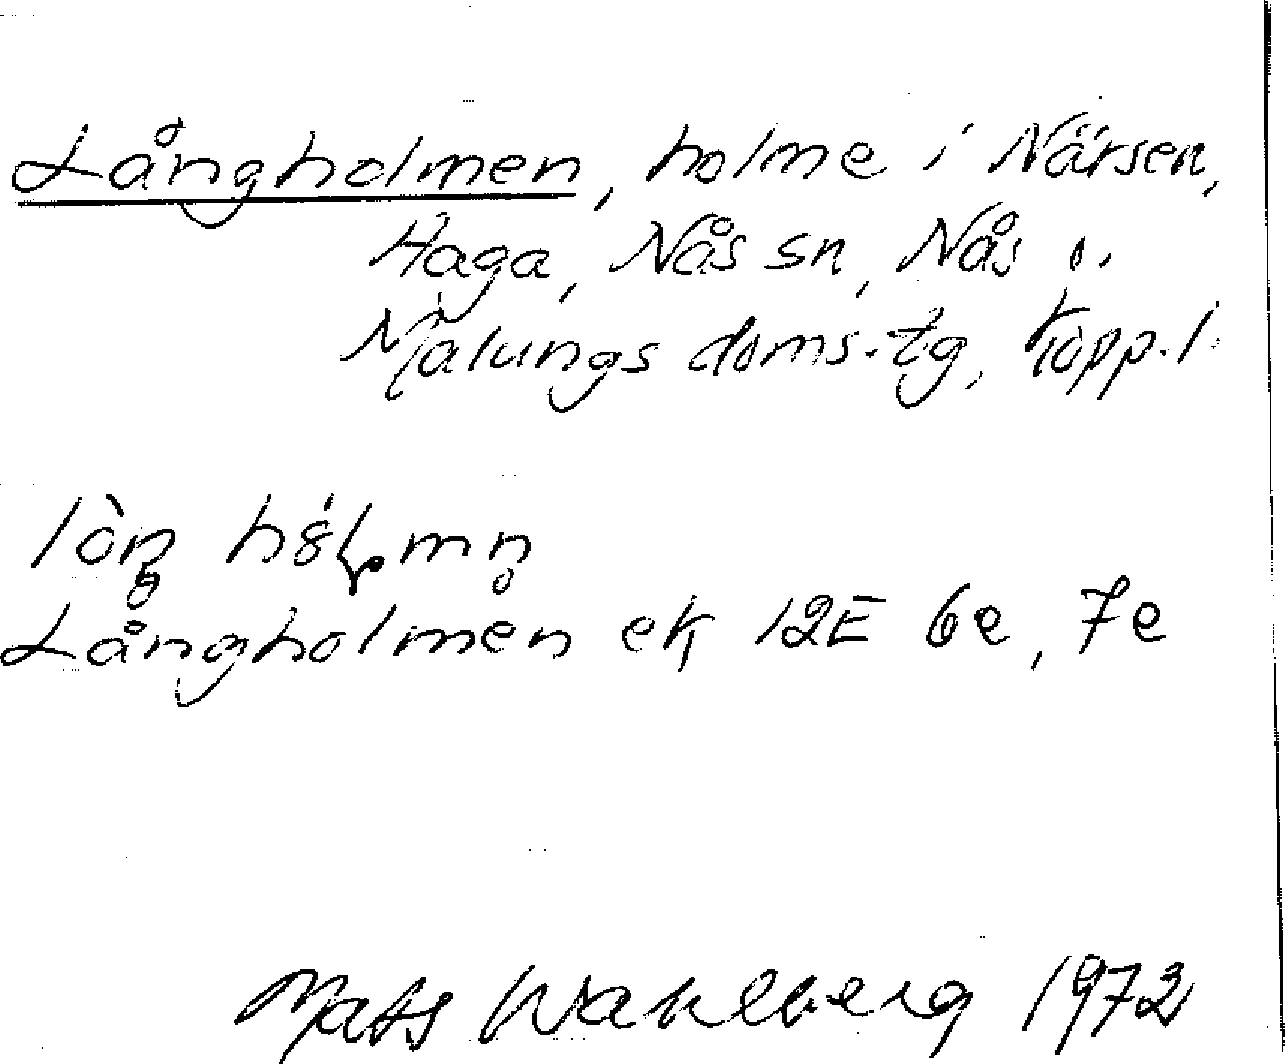 Långholmen, holme i Närsen,
Haga, Nås sn, Nås o.
Malungs doms.tg, Kopp.l.
Långholmen ek 12E 6e, 7e
Mats Wahlberg 1972